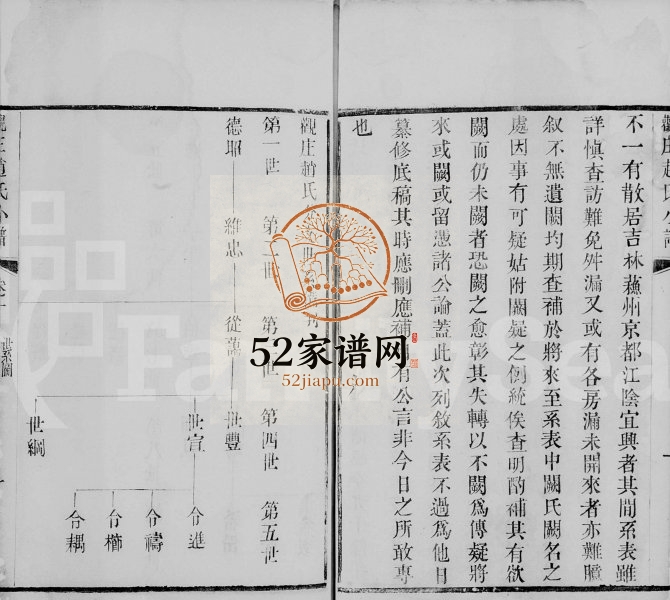 不一有散居吉林蘇州京都江陰宜興者其間系表雖
詳慎查訪難免舛漏又或有各房漏未開來者亦難臆
叙不無遺闕均期查補於將來至系表中闕氏闕名之
處因事有可疑姑附闕疑之例統俟查明酌補其有欲
闕而仍未闕者恐闕之愈彰其失轉以不闕爲傳疑將
來或闕或留憑諸公論蓋此次列敘系表不過爲他日
纂修底稿其時應刪應補有公言非今日之所敢專
也
觀庄趙氏
第一世 第二世 第世 第四世 第五世
德耶 維忠 從 世豐
世宣 令進
令禱
令櫛
令耦
世綱
趙氏
世系圖
52家谱网
52jiapu.com